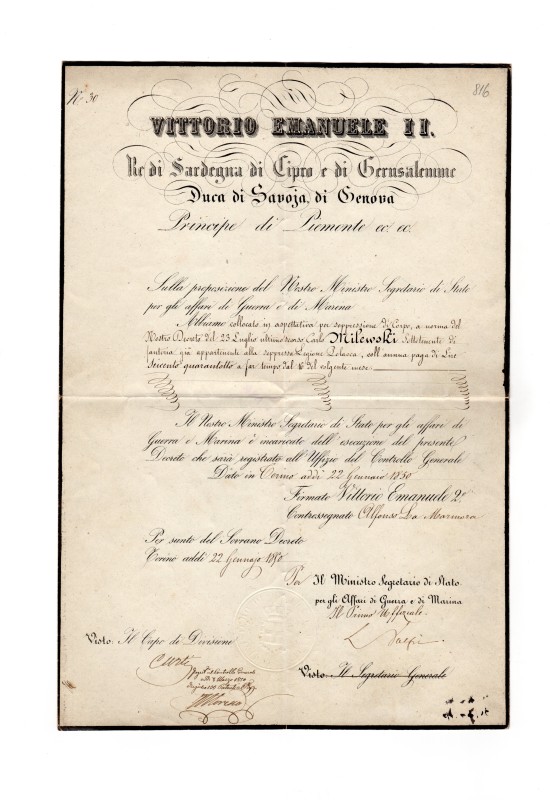 N.° 30
816
VITTORIO EMANUELE II.
Re di Sardegna di Cipro e di Gerusalemme
Duca di Savoja, di Genova
Principe di Piemonte ec. ec.
Sulla proposizione del Nostro Ministro Segretario di Stato
per gli affari di Guerra e di Marina
Abbiamo collocato in aspettativa per soppressione di Corpo, a norma del
Nostro Decreto del 23 Luglio ultimo scorso, Carlo Milewski Sottotenente di
fanteria già appartenente alla soppressa Legione Polacca, coll'annua paga di Lire
Seicento quarantotto a far tempo dal 16 del volgente mese.
Il Nostro Ministro Segretario di Stato per gli affari di
Guerra e Marina è incaricato dell'esecuzione del presente
Decreto che sarà registrato all'Uffizio del Controllo Generale
Dato in Torino addì 22 Gennaio 1850
Firmato Vittorio Emanuele 2°
Contrassegnato Alfonso La Marmora
Per sunto del Sovrano Decreto
Torino addì 22 Gennajo 1850
Per Il Ministro Segretario di Stato
per gli Affari di Guerra e di Marina
Il Primo Uffiziale
Visto: Il Capo de Divisione
V.° Visto: Il Segretario Generale